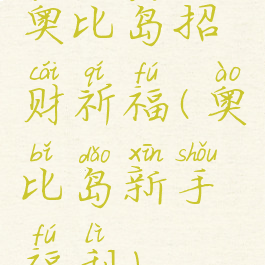 奥比岛招
cái qí fú ào
财祈福(奥
bǐ dǎo xīn shǒu
比岛新手
fú lì
福利)